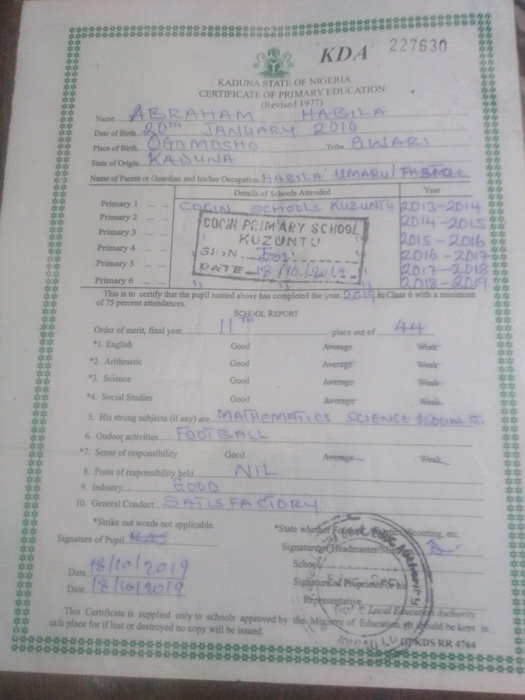 KDA 227630
KADUNA STATE OF NIGERIA
CERTIFICATE OF PRIMARY EDUCATION
(Revised 1977)
Name ABRAHAM HABILA
Date of Birth 20TH JANUARY 2010
Place of Birth OGOMOSHO Tribe BWARI
State of Origin KADUNA
Name of Parent or Guardian and his/her Occupation HABILA UMARU/
Details of Schools Attended Year
Primary 1 COCIN SCHOOLS KUZUNTU 2013-2014
Primary 2 2014-2015
Primary 3 2015-2016
Primary 4 2016-2017
Primary 5 2017-2018
Primary 6 2018-2019
COCIN PRIMARY SCHOOL
KUZUNTU
SIGN
DATE 18/10/2019
This is to certify that the pupil named above has completed the year 2019 in Class 6 with a minimum
of 75 percent attendances.
SCHOOL REPORT
Order of merit, final year, 11TH place out of 44
*1. English Good Average Weak
*2. Arithmetic Good Average Weak
*3. Science Good Average Weak
*4. Social Studies Good Average Weak
5. His strong subjects (if any) are MATHEMATICS SCIENCE
6. Oudoor activities FOOTBALL
*7. Sense of responsibility Good Average Weak
8. Posts of responsibility held NIL
9. Industry GOOD
10. General Conduct SATISFACTORY
*Strike out words not applicable. *State whether Scouting, etc.
Signature of Pupil Signature of Headmaster/
Date 18/10/2019 School
Date 18/10/2019 Signature of
Representative
Local Education Authority
This Certificate is supplied only to schools approved by the Ministry of Education should be kept in
safe place for if lost or destroyed no copy will be issued.
KDS RR 4764